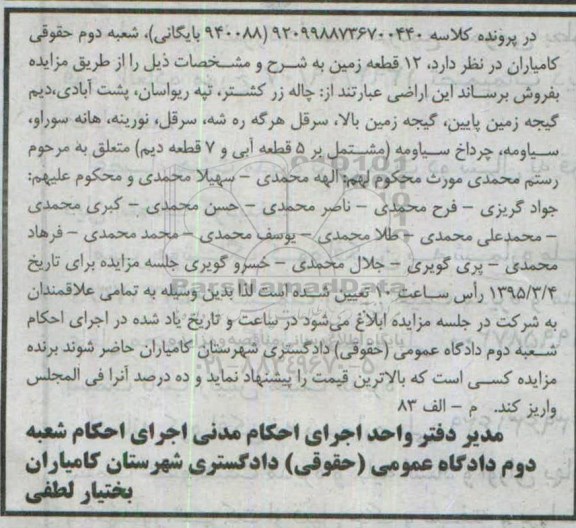 در پرونده کلاسه ۹۲۰۹۹۸۸۷۳۶۷۰۰۴۴۰ (۹۴۰۰۸۸ بایگانی)، شعبه دوم حقوقی
کامیاران در نظر دارد، ۱۲ قطعه زمین به شرح و مشخصات ذیل را از طریق مزایده
بفروش برساند این اراضی عبارتند از: چاله زر کشتر، تپه ریواسان، پشت آبادی،دیم
گیجه زمین پایین، گیجه زمین بالا، سرقل هرگه ره شه، سرقل، نورینه، هانه سوراو،
سیاومه، چرداخ سیاومه (مشتمل بر ۵ قطعه آبی و ۷ قطعه دیم) متعلق به مرحوم
رستم محمدی مورث محکوم لهم: الهه محمدی – سهیلا محمدی و محکوم علیهم:
جواد گریزی – فرح محمدی – ناصر محمدی – حسن محمدی – کبری محمدی
– محمدعلی محمدی – طلا محمدی – یوسف محمدی – محمد محمدی – فرهاد
محمدی – پری گویری – جلال محمدی – خسرو گویری جلسه مزایده برای تاریخ
۱۳۹۵/۳/۴ رأس ساعت ۱۰ تعیین شده است لذا بدین وسیله به تمامی علاقمندان
به شرکت در جلسه مزایده ابلاغ می‌شود در ساعت و تاریخ یاد شده در اجرای احکام
شعبه دوم دادگاه عمومی (حقوقی) دادگستری شهرستان کامیاران حاضر شوند برنده
مزایده کسی است که بالاترین قیمت را پیشنهاد نماید و ده درصد آنرا فی المجلس
واریز کند. م – الف ۸۳
مدیر دفتر واحد اجرای احکام مدنی اجرای احکام شعبه
دوم دادگاه عمومی (حقوقی) دادگستری شهرستان کامیاران
بختیار لطفی